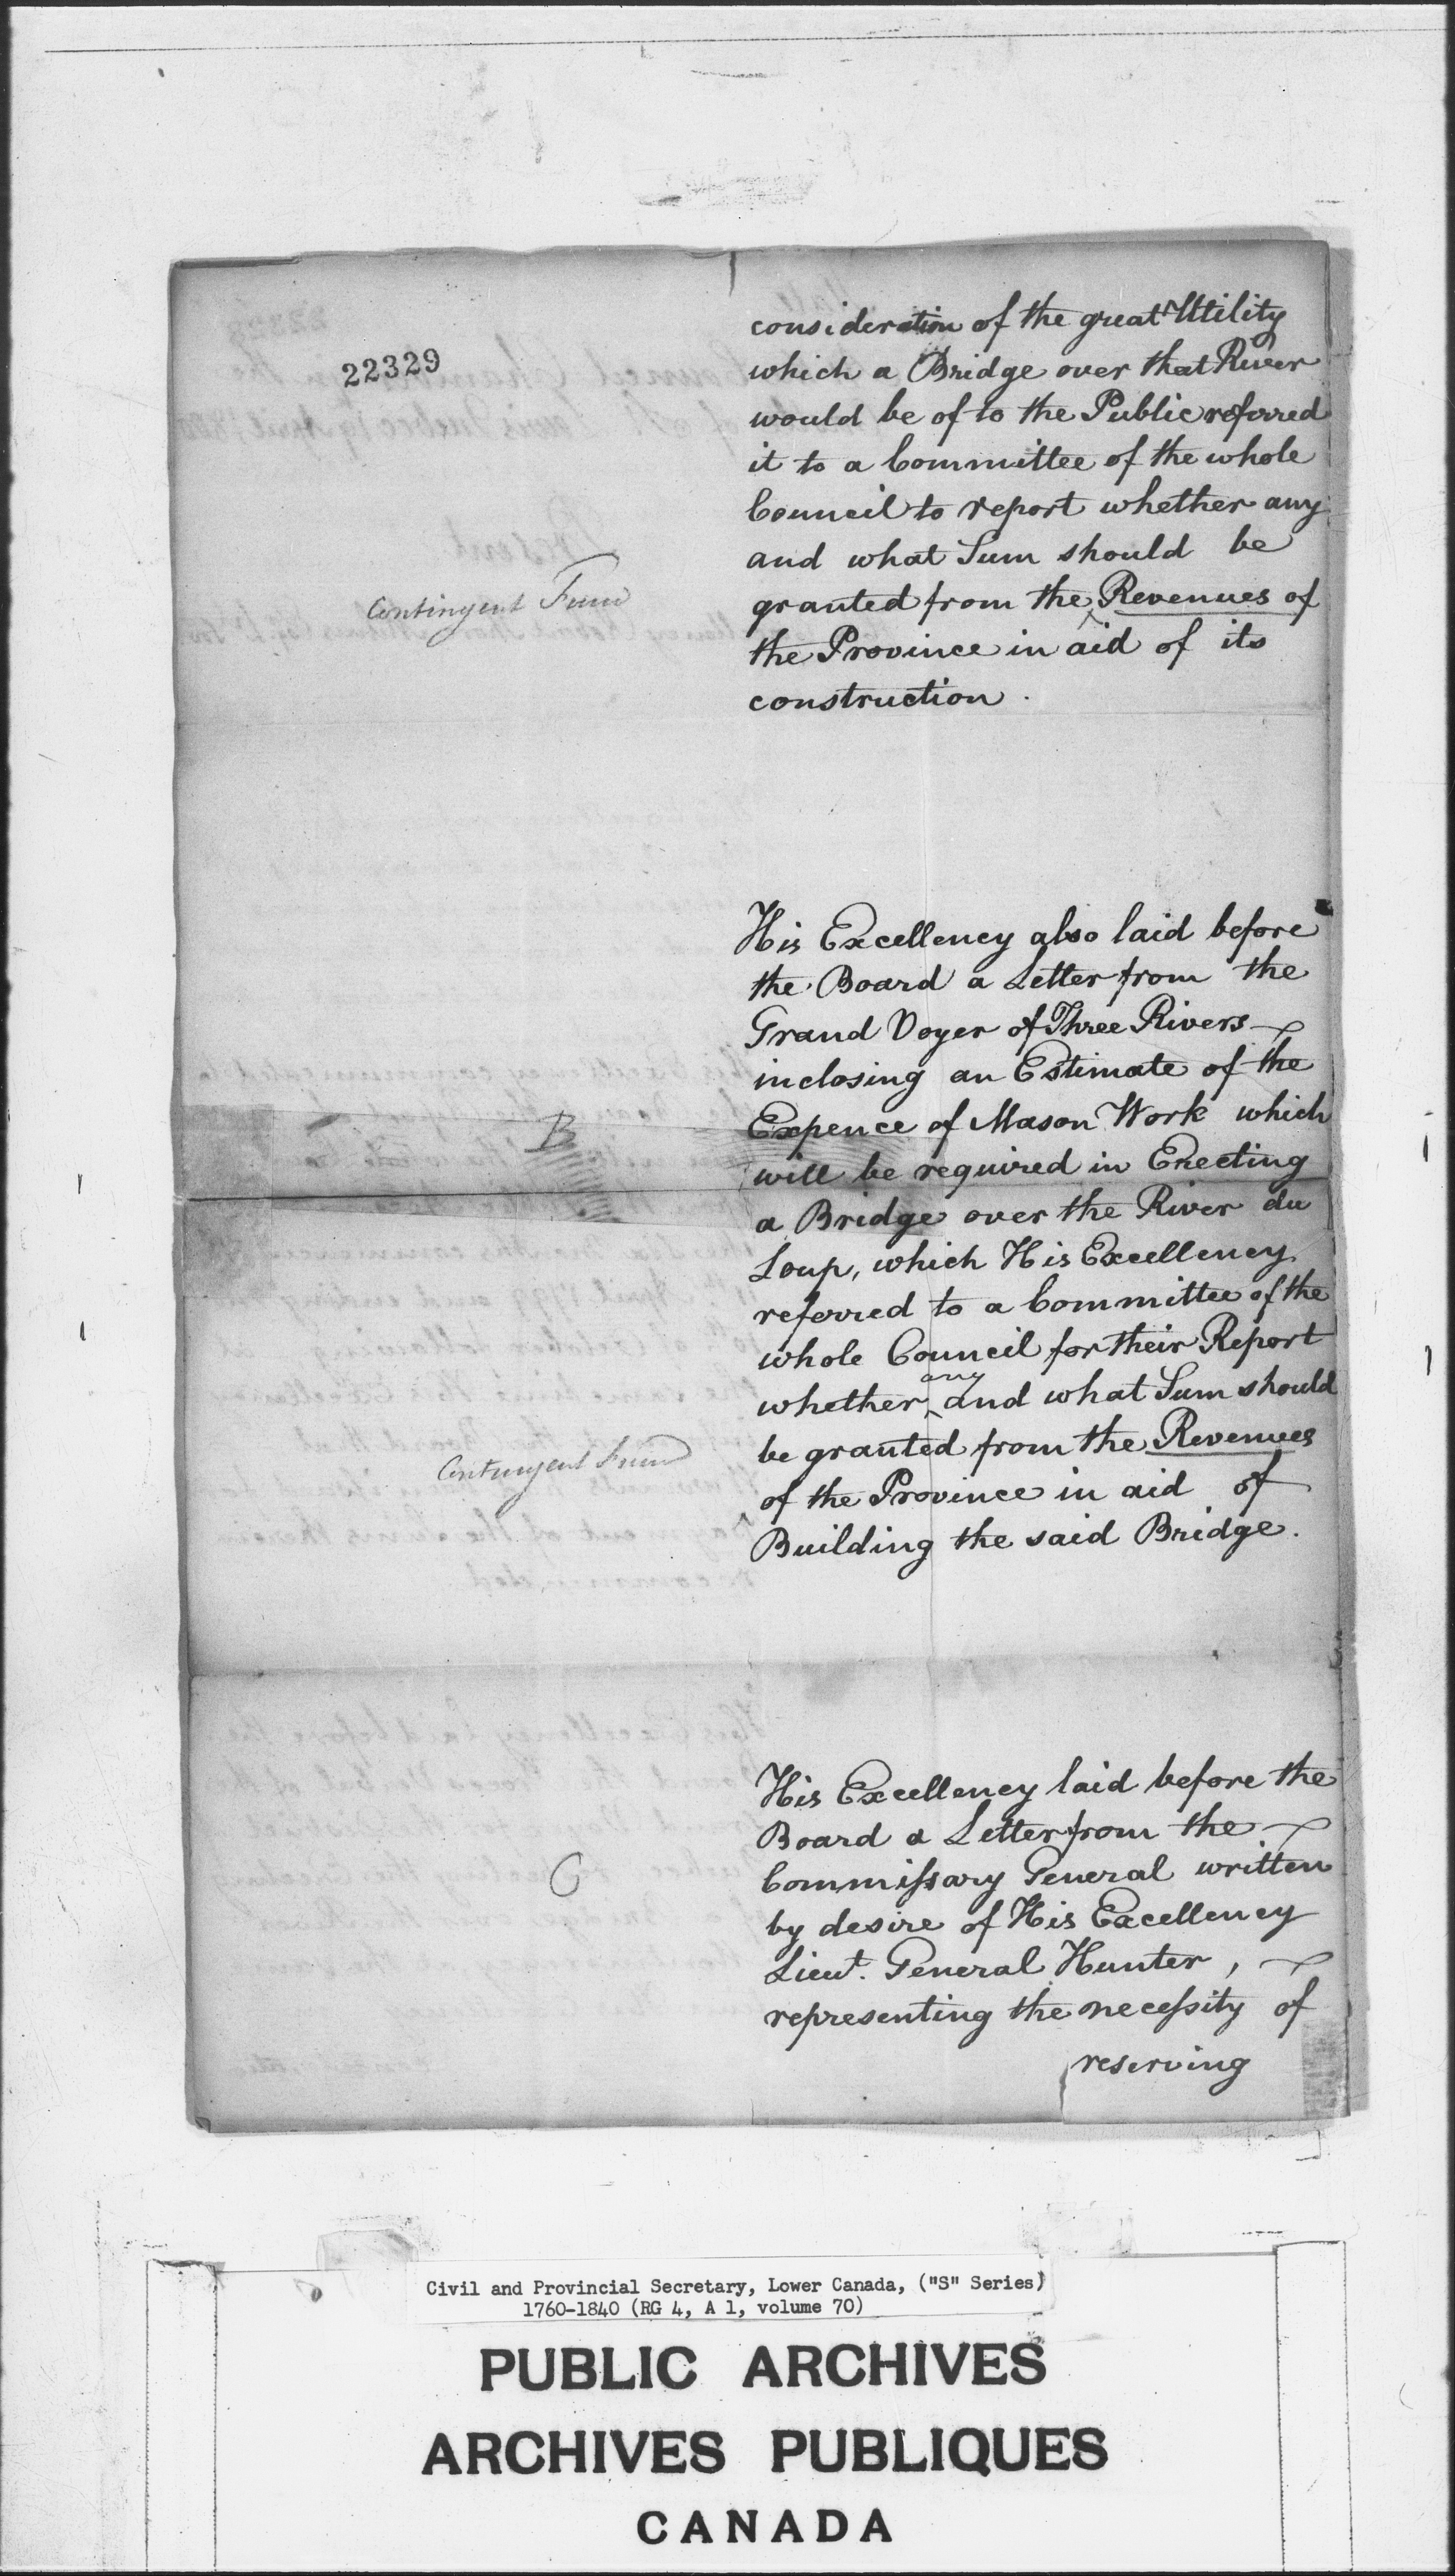 22329
consideration of the great Utility
which a Bridge over that River
would be of to the Public referred
it to a Committee of the whole
Council to report whether any
and what Sum should be
Contingent Fund
granted from the ^ Revenues of
the Province in aid of its
construction.
His Excellency also laid before
the Board a Letter from the
Grand Voyer of Three Rivers
inclosing an Estimate of the
B
Expence of Mason Work which
will be required in Erecting
a Bridge over the River du
Loup, which His Excellency
referred to a Committee of the
whole Council for their Report
whether ^any and what Sum should
be granted from the Revenues
Contingent Fund
of the Province in aid of
Building the said Bridge.
His Excellency laid before the
Board a Letter from the
C
Commissary General written
by desire of His Excellency
Lieut. General Hunter,
representing the necessity of
reserving
Civil and Provincial Secretary, Lower Canada, ("S" Series)
1760-1840 (RG 4, A 1, volume 70)
PUBLIC ARCHIVES
ARCHIVES PUBLIQUES
CANADA